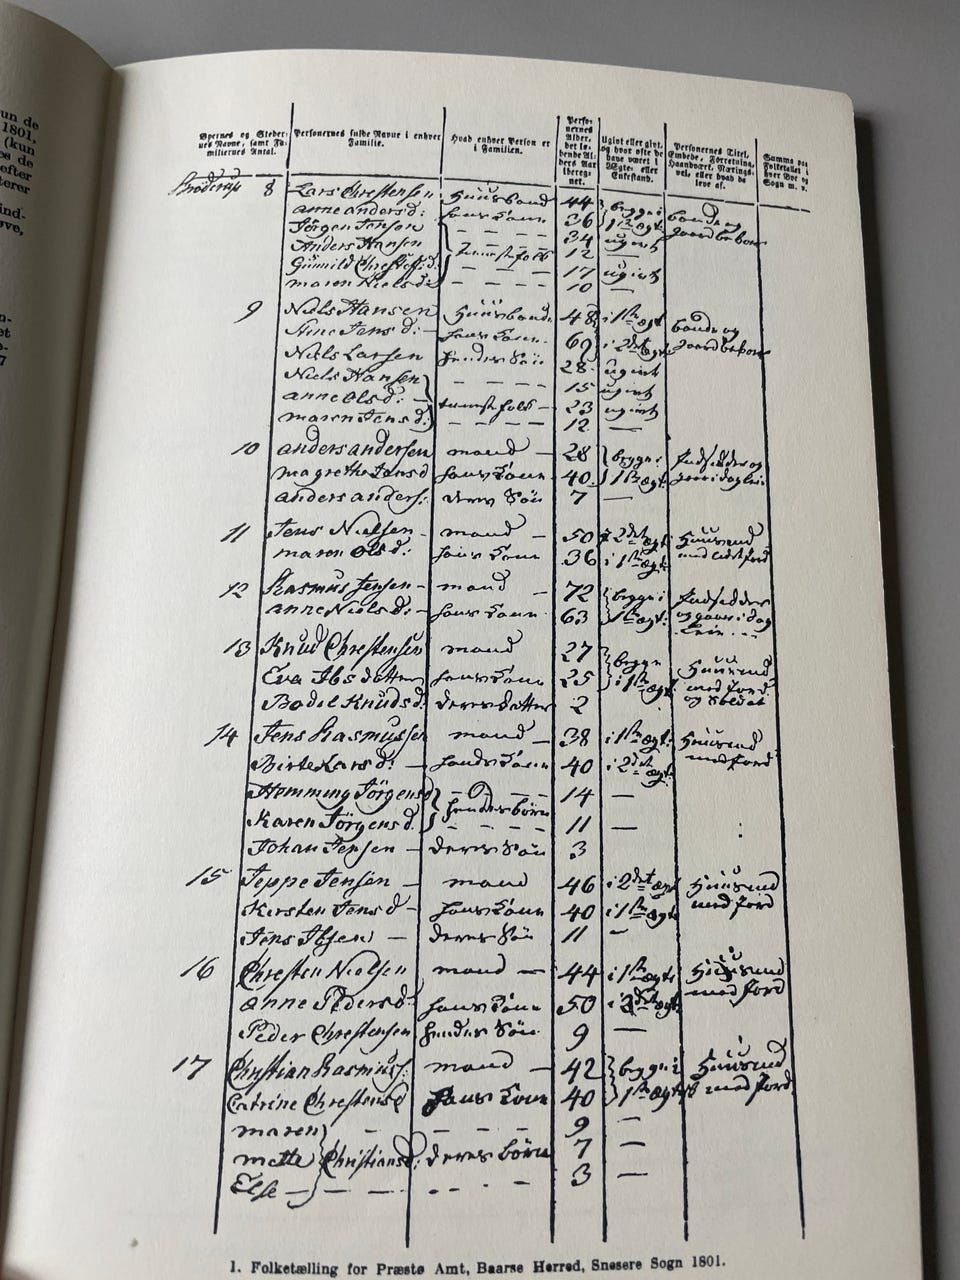 un de
1801,
(kun
es de
efter
terer
ind-
øve,
n-
et
e-
7
Byernes og Steder-
nes Navne, samt Fa-
miliernes Antal.
Personernes fulde Navne i enhver
Familie.
Hvad enhver Person er
i Familien.
Perso-
nernes
Alder,
det lø-
bende Al-
ders Aar
iberег-
net.
Ugivt eller givt,
og hvor ofte de
have været i
Ægte- eller
Enkestand.
Personernes Titel,
Embede, Forretning,
Haandværk, Nærings-
vei, eller hvad de
leve af.
Summa paa
Folketallet i
hver Bye og
Sogn m. v.
Snøderup 8 Lars Christensen Huusbond 44 begge i bonde og
anne andersd: hans Kone 36 1ste ægt: gaardbeboer
Jörgen Jensen 34 ugivt
Anders Hansen tienestefolk 12 —
Gunnild Christofs:d: 17 ugivt
maren Niels d: 10 —
9 Niels Hansen Huusbonde 48 i 1ste ægt bonde og
Jens d: — hans Kone 69 i 2det ægt gaardbeboer
Niels Larsen hendes Sön 28 ugivt
Niels Hansen 15 ugivt
anne Ols d: — tienestefolk — 23 ugivt
maren Jens d: 12 —
10 anders andersen mand — 28 begge i Indsidder og
magrethe Lars d hans Kone 40 1ste ægt:
anders anders: deres Sön 7 —
11 Jens Nielsen mand — 50 i 2det ægt: Huusmd
maren Ols d: hans Kone 36 i 1ste ægt: med lidet jord
12 Rasmus Jensen — mand — 72 begge i Indsidder
anne Niels d: — hans Kone 63 1ste ægt: og gaaer i dag
Leie
13 Knud Christensen mand 27 begge Huusmd
Eva Ibs datter hans Kone 25 i 1ste ægt med jord
Bodil Knuds d: deres datter 2 og Soldat
14 Jens Rasmussen mand — 38 i 1ste ægt: Huusmd
Birte Lars d: — hans Kone 40 i 2det ægt: med jord
Hemming Jörgens 14 —
Karen Jörgens d. hendes börn 11 —
Johan Jensen — deres Sön 3
15 Jeppe Jensen — mand 46 i 2det ægt Huusmd
Kirsten Jens d — hans Kone 40 i 1ste ægt: med jord
Jens Ibsen — deres Sön 11 —
16 Christen Nielsen mand — 44 i 1ste ægt: Huusmd
anne Peders d: hans Kone 50 i ægt: med jord
Peder Christensen hendes Sön 9 —
17 Christian Rasmus: mand — 42 begge i Huusmd
Catrine Christens d hans Kone 40 1ste ægt: med jord
maren 9 —
mette Christians d: deres börn 7 —
Else — 3 —
1. Folketælling for Præstø Amt, Baarse Herred, Snesere Sogn 1801.